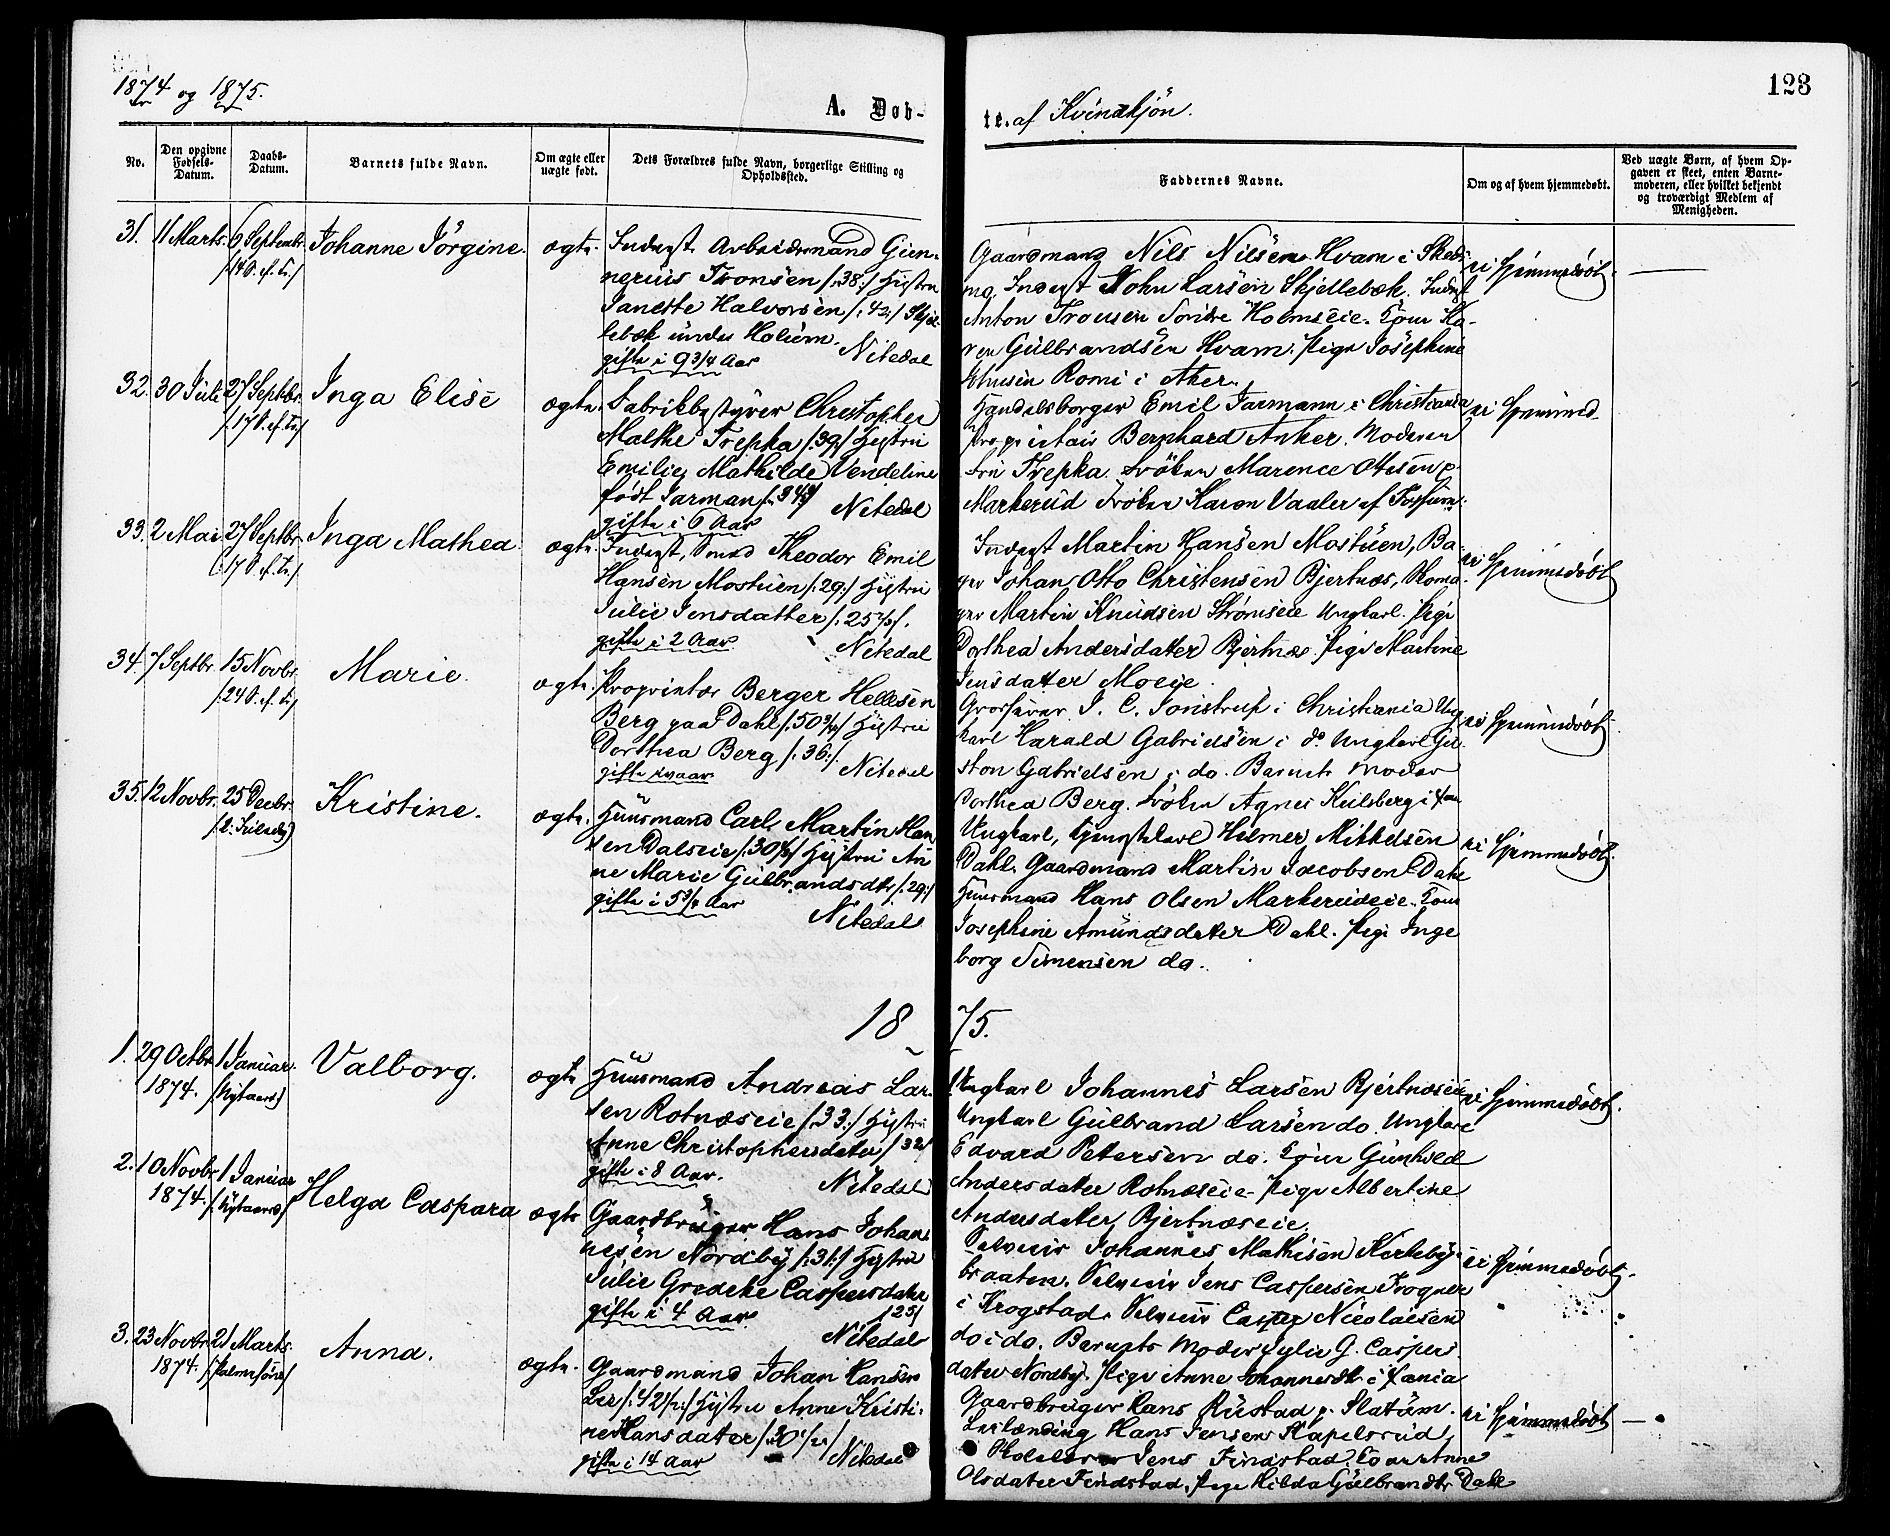 1874 og 1875.
A. Døb-
te. af Kvindkjön.
123
No.
Den opgivne
Fødsels-
Datum.
Daabs-
Datum.
Barnets fulde Navn.
Om ægte eller
uægte født.
Dets Forældres fulde Navn, borgerlige Stilling og
Opholdssted.
Faddernes Navne.
Om og af hvem hjemmedøbt.
Ved uægte Børn, af hvem Op-
gaven er skeet, enten Barne-
moderen, eller hvilket bekjendt
og troværdigt Medlem af
Menigheden.
31. 11 Marts. 6 Septembr.
/14 S. ef. Tr/
Johanne Jörgine.
ægte.
Inderst Arbeidsmand Gun-
nerius Tronsen /:38:/ Hustru
Janette Halvorsen /:42:/ Skjel-
lebæk under Holum.
gifte i 9 3/4 Aar Nitedal
Gaardmand Nils Nilsen Hvam i Skeds-
mo, Inderst John Larsen Skjellebæk. Inderst
Anton Tronsen Söndre Holmseie. Kone Ka-
ren Gulbrandsen Hvam. Pige Josephine
Romi i Aker.
ei hjemmedöbt.
32. 30 Juli 27 Septbr.
/17 S. ef. Tr/
Inga Elise
ægte.
Fabrikbestyrer Christopher
Malthe Trepka /:39:/ Hustru
Emilie Mathilde Vendeline
født Jarman /:34:/
gifte i 6 Aar Nitedal
Handelsborger Emil Jarmann i Christiania
Proprietair Bernhard Anker. Moderen
Fru Trepka. Fröken Marence Ottesen p.
Markerud Fröken Karen Vaaler af Fossum.
ei hjemmed.
33. 2 Mai 27 Septbr.
/:17 S. ef. Tr/
Inga Mathea
ægte.
Inderst, Smed Theodor Emil
Hansen Mostuen /:29:/ Hustru
Julie Jensdatter /:25 /.
gifte i 2 Aar Nitedal
Inderst Martin Hansen Mostuen, Ba-
ger Johan Otto Christensen Bjertnæs, Skoma-
ger Martin Knudsen Strömseie Ungkarl. Pige
Dorthea Andersdatter Bjertnæs. Pige Martine
Jensdatter Moeie.
ei hjemmedöbt
34. 7 Septbr. 15 Novbr.
/24 S. ef. Tr/
Marie.
ægte.
Proprietær Berger Hellesen
Berg paa Dahl /:50 3/4/ Hustru
Dorthea Berg /:36:/.
gifte Nitedal
Grosserer J. C. Jonstrup i Christiania Ung-
karl Harald Gabrielsen i do. Ungkarl Gu-
ston Gabrielsen i do. Barnets Moder
Dorthea Berg. Fröken Agnes Keilsberg i Xania
ei hjemmedöbt.
35. 12 Novbr. 25 Decbr.
/1: Juledag/
Kristine.
ægte.
Huusmand Carl Martin Han-
sen Dalseie /:30 / Hustru An-
ne Marie Gulbrandsdtr /:29:/
gifte i 5 3/4 Aar
Nitedal
Ungkarl, tjenestekarl Hilmer Mikkelsen
Dahl. Gaardmand Martin Jacobsen Dahl
Huusmand Hans Olsen Markerudeie. Kone
Josephine Amundsdatter Dahl. Pige Inge-
borg Simensen do.
ei hjemmedöbt.
18 75.
1. 29 Octbr. 1 Januar.
1874. /Nytaarsd/
Valborg.
ægte
Huusmand Andreas Lar-
sen Rotnæseie /:33:/ Hustru
Anne Christophersdatter / 32/
gifte i 8 Aar.
Nitedal
Ungkarl Johannes Larsen Bjertnæseie
Ungkarl Gulbrand Larsen do. Ungkarl
Edvard Petersen do. Kone Gunhild
Andersdatter Rotnæseie. Pige Albertine
Andersdatter Bjertnæseie.
ei hjemmedöbt.
2. 10 Novbr. 1 Januar
1874. /Nytaarsd/
Helga Caspara
ægte
Gaardbruger Hans Johan-
nesen Nordby /:31:/ Hustru
Julie Gredeke Caspersdatter
gifte i 4 Aar /25/
Nitedal
Selveier Johannes Mathisen Kirkeby-
braaten. Selveier Jens Caspersen Frogner
i Krogstad. Selveier Casper Nicolaisen
do i do. Barnets Moder Julie G. Caspers-
datter Nordby. Pige Anne Johannesdtr i Xania
ei hjemmedöbt.
3. 23 Novbr. 21 Marts.
1874. /Palmesönd/
Anna.
ægte.
Gaardmand Johan Hansen
Lie /:42 1/2:/ Hustru Anne Kristi-
ne Hansdatter /:30 /
gifte i 14 Aar Nitedal
Gaardbruger Hans Rustad p. Slatum.
Hans Jensen Kapelsrud,
Jens Findstad, Kone Anne
Olsdatter Findstad, Pige Hilda Gulbrandsdtr Dahl
ei hjemmedöbt